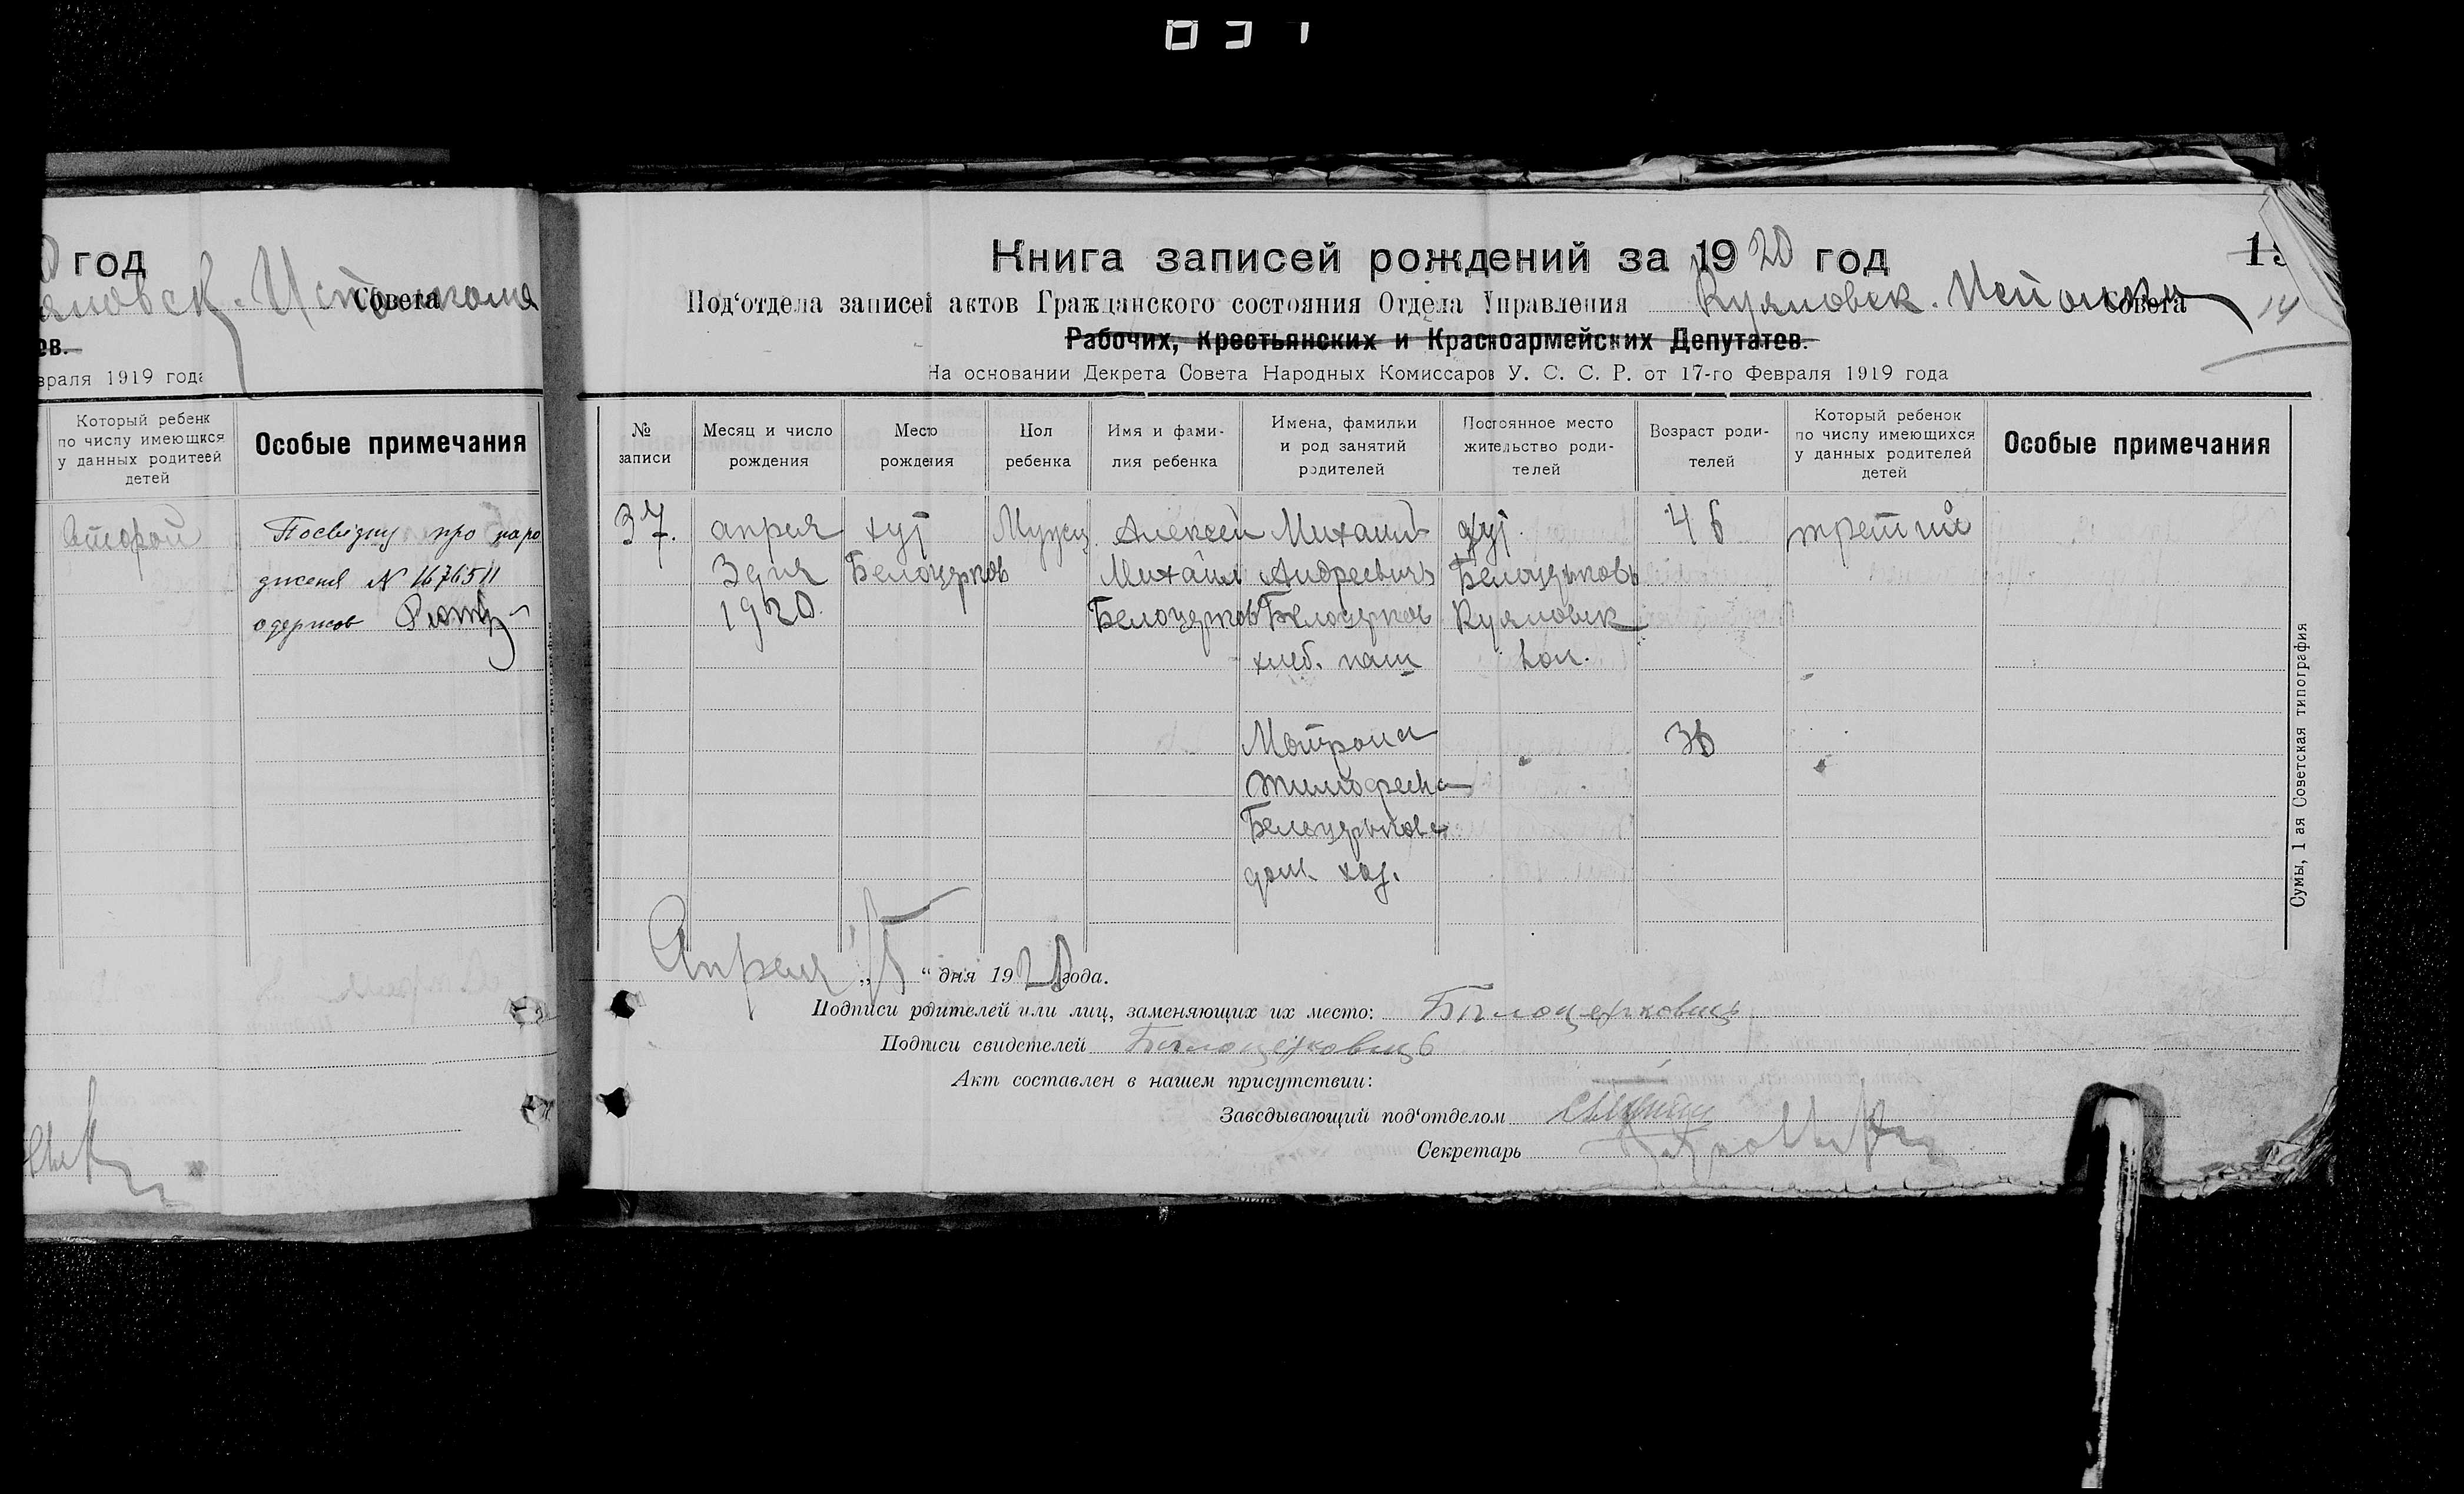 год
Совета
ев.
враля 1919 года
Который ребенк
по числу имеющкся
у данных родитеей
детей
Особые примечания
второй
Посвідку про наро
дженя N 1676511
одержов
Книга записей рождений за 1920 год
Под‘отдела записей актов Гражданского состояния Отдела Управления Куяновск. Исполкома Совета
14
Рабочих, Крестьянских и Красноармейских Депутатев.
На основании Декрета Совета Народных Комиссаров У. С. С. Р. от 17-го Февраля 1919 года
№ записи
Месяц и число рождения
Место рождения
Пол ребенка
Имя и фами-лия ребенка
Имена, фамилки и род занятий родителей
Постоянное место жительство роди-телей
Возраст роди-телей
Который ребенок по числу имеющихся у данных родителей детей
Особые примечания
37. апреля хут Мужс. Алексей Михаил хут. 46 третий
3 дня Белоцерков Михаил Андреевичь Белоцерковь
1920. Белоцерков Белоцерков Куяновск
хлеб. паш вол.
Мотрона 36
Тимофеевна
Белоцеркова
дом. хоз.
Апреля „ “ дня 1920 года.
Подписи родителей или лиц, заменяющих их место: Билоцерковиць
Подписи свидетелей Билоцерковиць
Акт составлен в нашем присутствии:
Заведывающий под‘отделом
Секретарь
Сумы, 1 ая Советская типография